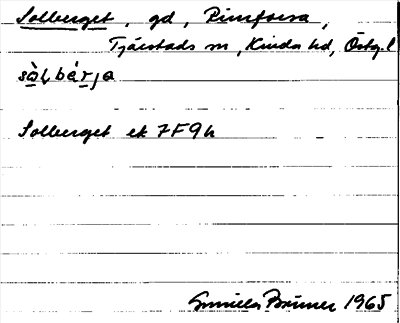 Solberget, gd, Rimforsa,
Tjärstads sn, Kinda hd, Östg. l
sàḷbárja
Solberget ek 7F9h
Gunilla Brünner 1965